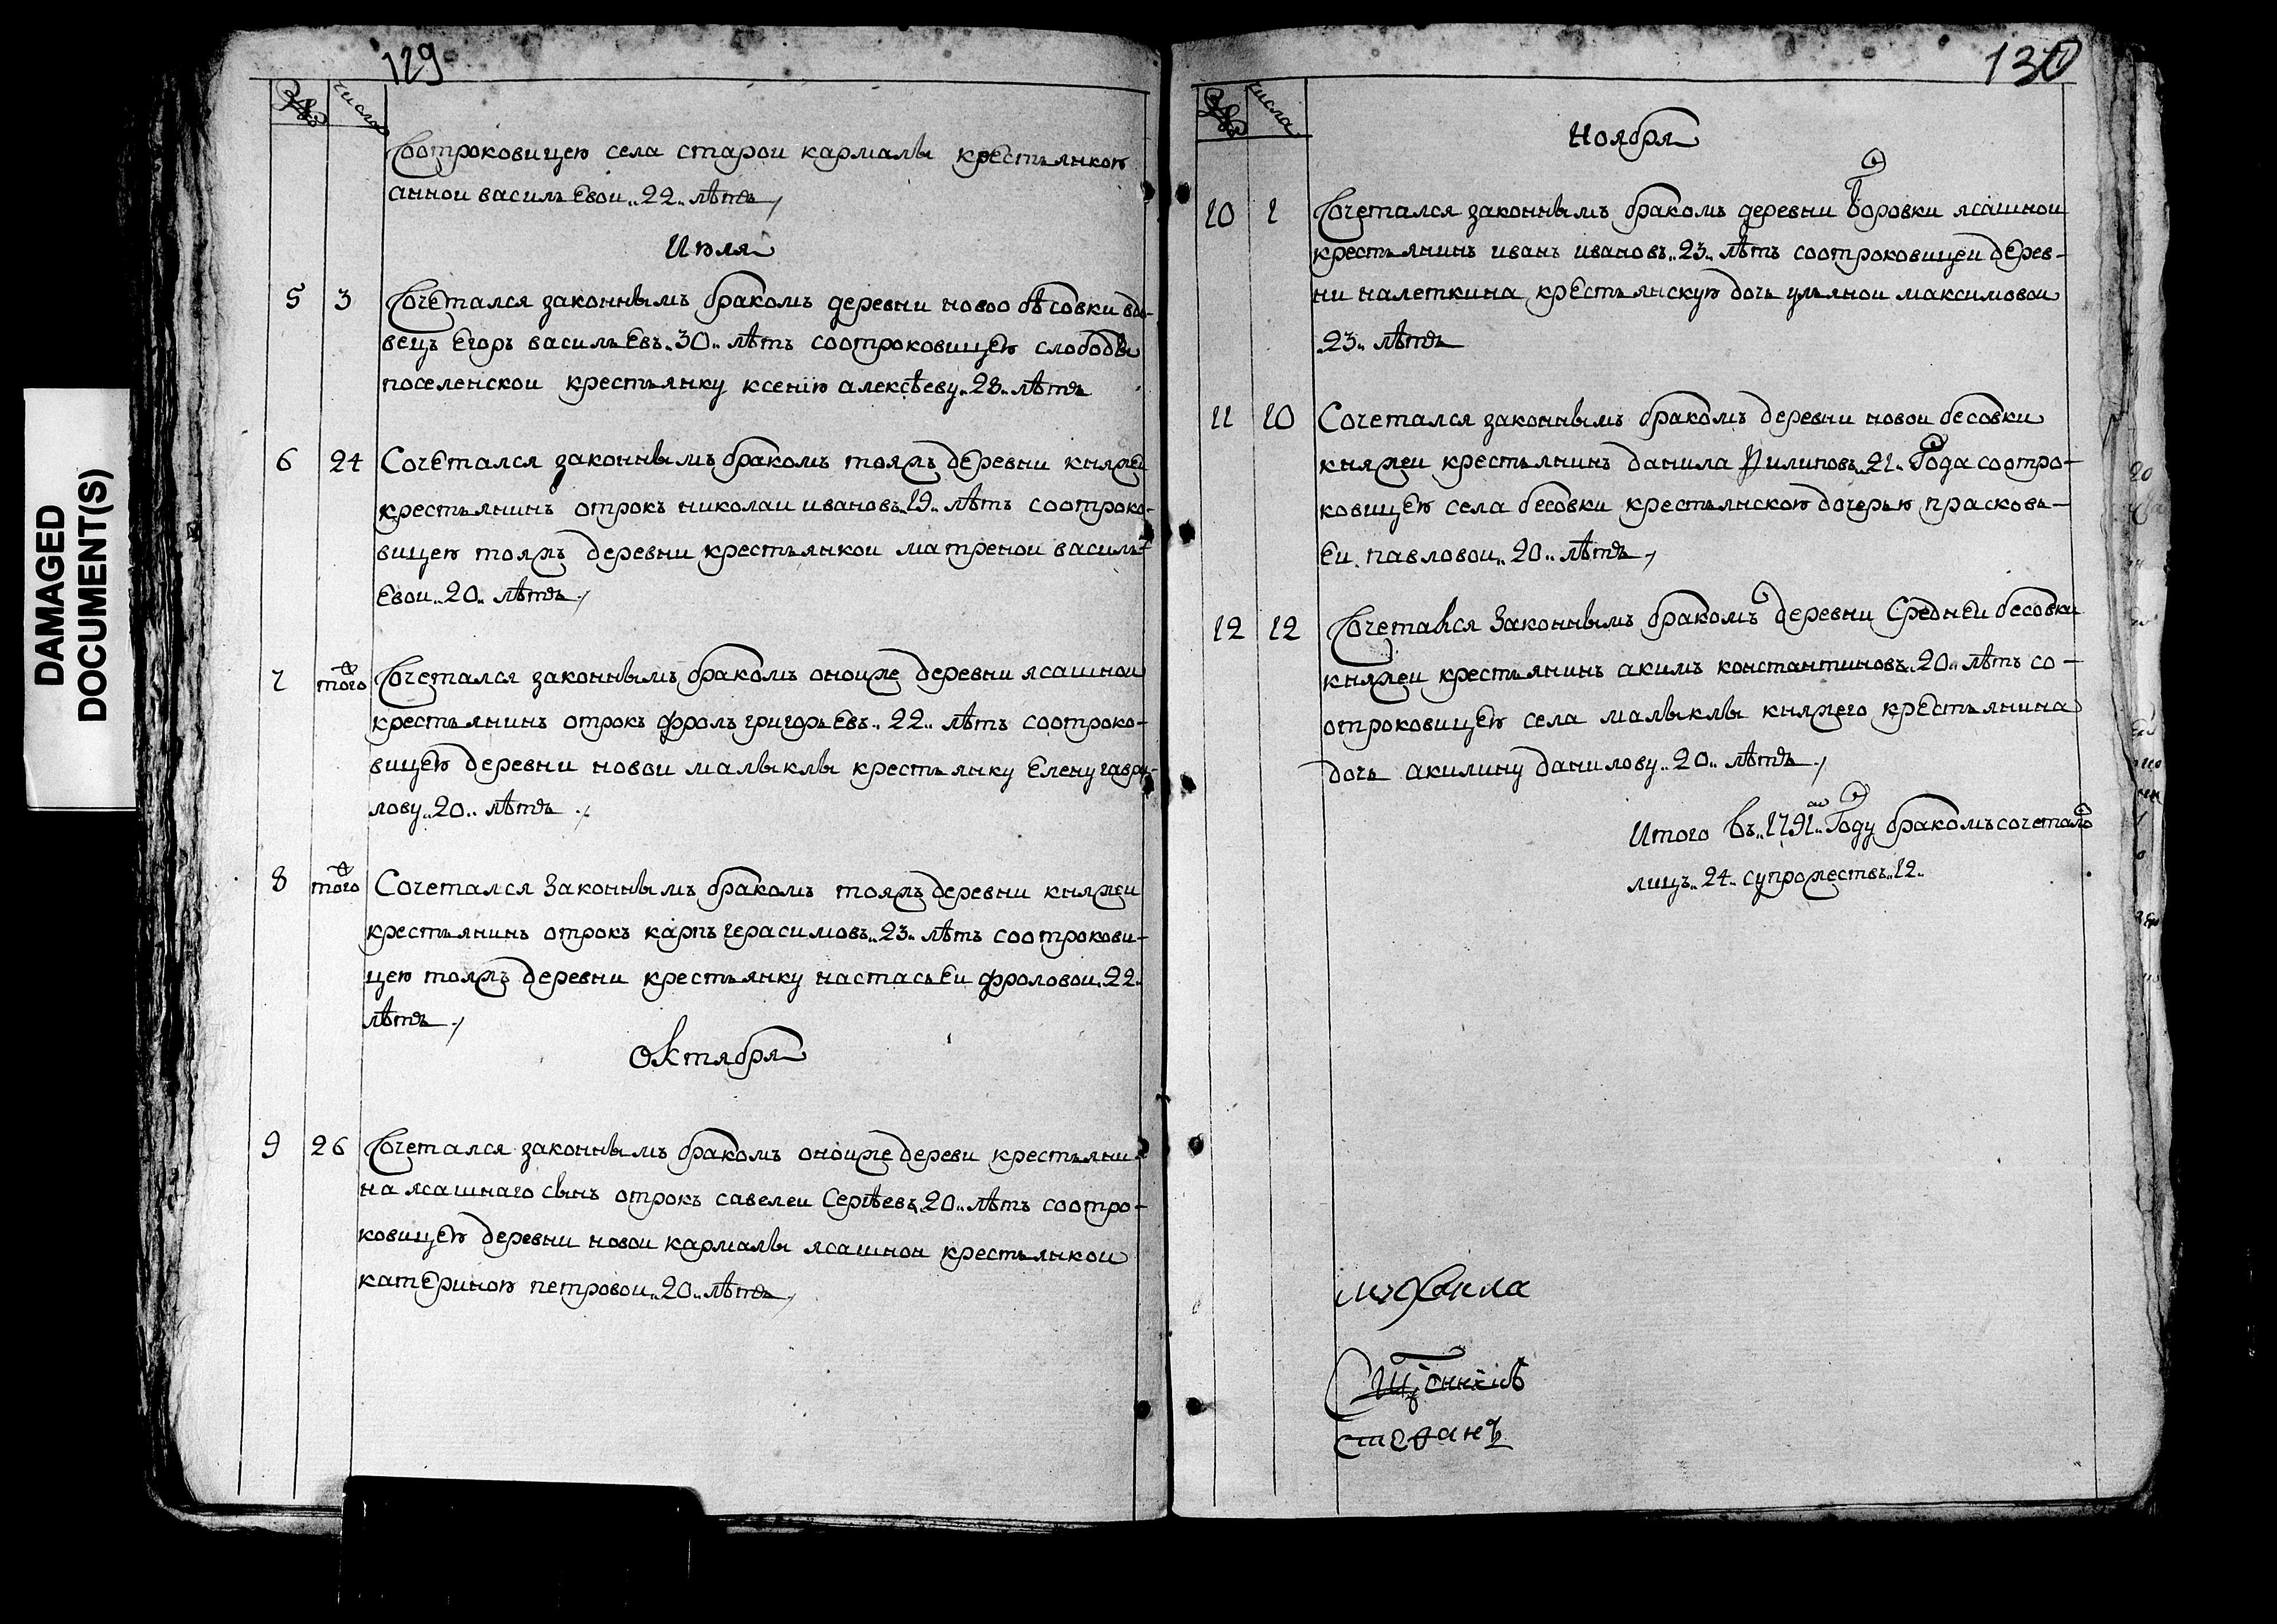 DAMAGED
DOCUMENT(S)
129
числа
Соотроковицею села старои кармалы крестьянкою
анною васильевои 22 лѣтъ
Июля
5 3 Сочетался законнымъ бракомъ деревни новоо бѣсовки вдо-
вецъ Егоръ васильЕвъ 30 лѣтъ соотроковицею слободы
поселенскои крестьянку ксенію алексѣеву 28 лѣтъ
6 24 Сочетался законнымъ бракомъ тояжъ деревни княжеи
крестьянинъ отрокъ николаи ивановъ 19 лѣтъ соотроко-
вицею тояжъ деревни крестьянкои матренои василь-
Евои 20 лѣтъ
7 того Сочетался законнымъ бракомъ оноиже деревни ясашнои
крестьянинъ отрокъ фролъ григорьЕвъ 22 лѣтъ соотроко-
вицею деревни новои малыклы крестьянку Елену гаври-
лову 20 лѣтъ
8 того Сочетался Законнымъ бракомъ тояжъ деревни княжеи
крестьянинъ отрокъ карпъ герасимовъ 23 лѣтъ соотрокови-
цею тояжъ деревни крестьянку настасьЕи фроловои 22
лѣтъ
Октября
9 26 Сочетался законнымъ бракомъ оноиже дереви крестьяни-
на ясашнаго сынъ отрокъ савелеи Сергѣевъ 20 лѣтъ соотро-
ковицею деревни новои кармалы ясашнои крестьянкои
катЕриною петровои 20 лѣтъ
130
числа
Ноября
10 1 Сочетался законнымъ бракомъ деревни боровки ясашнои
крестьянинъ иванъ ивановъ 23 лѣтъ соотроковицеи дерев-
ни налеткина крЕстьянскую дочь ульянои максимовои
23 лѣтъ
11 10 Сочетался законнымъ бракомъ деревни новои бесовки
княжеи крестьянинъ данила Филиповъ 21 Года соотро-
ковицею села бесовки крестьянскою дочерью прасковь-
Еи павловои 20 лѣтъ
12 12 Сочетался Законнымъ бракомъ деревни СреднЕи бесовки
княжеи крестьянинъ акимъ константиновъ 20 лѣтъ со-
отроковицею села малыклы княжего крЕстьянина
дочь акилину данилову 20 лѣтъ
Итого въ 1791 Году бракомъ сочетало
лицъ 24 супружествъ 12
михаила
Сщенникъ
Стефанъ